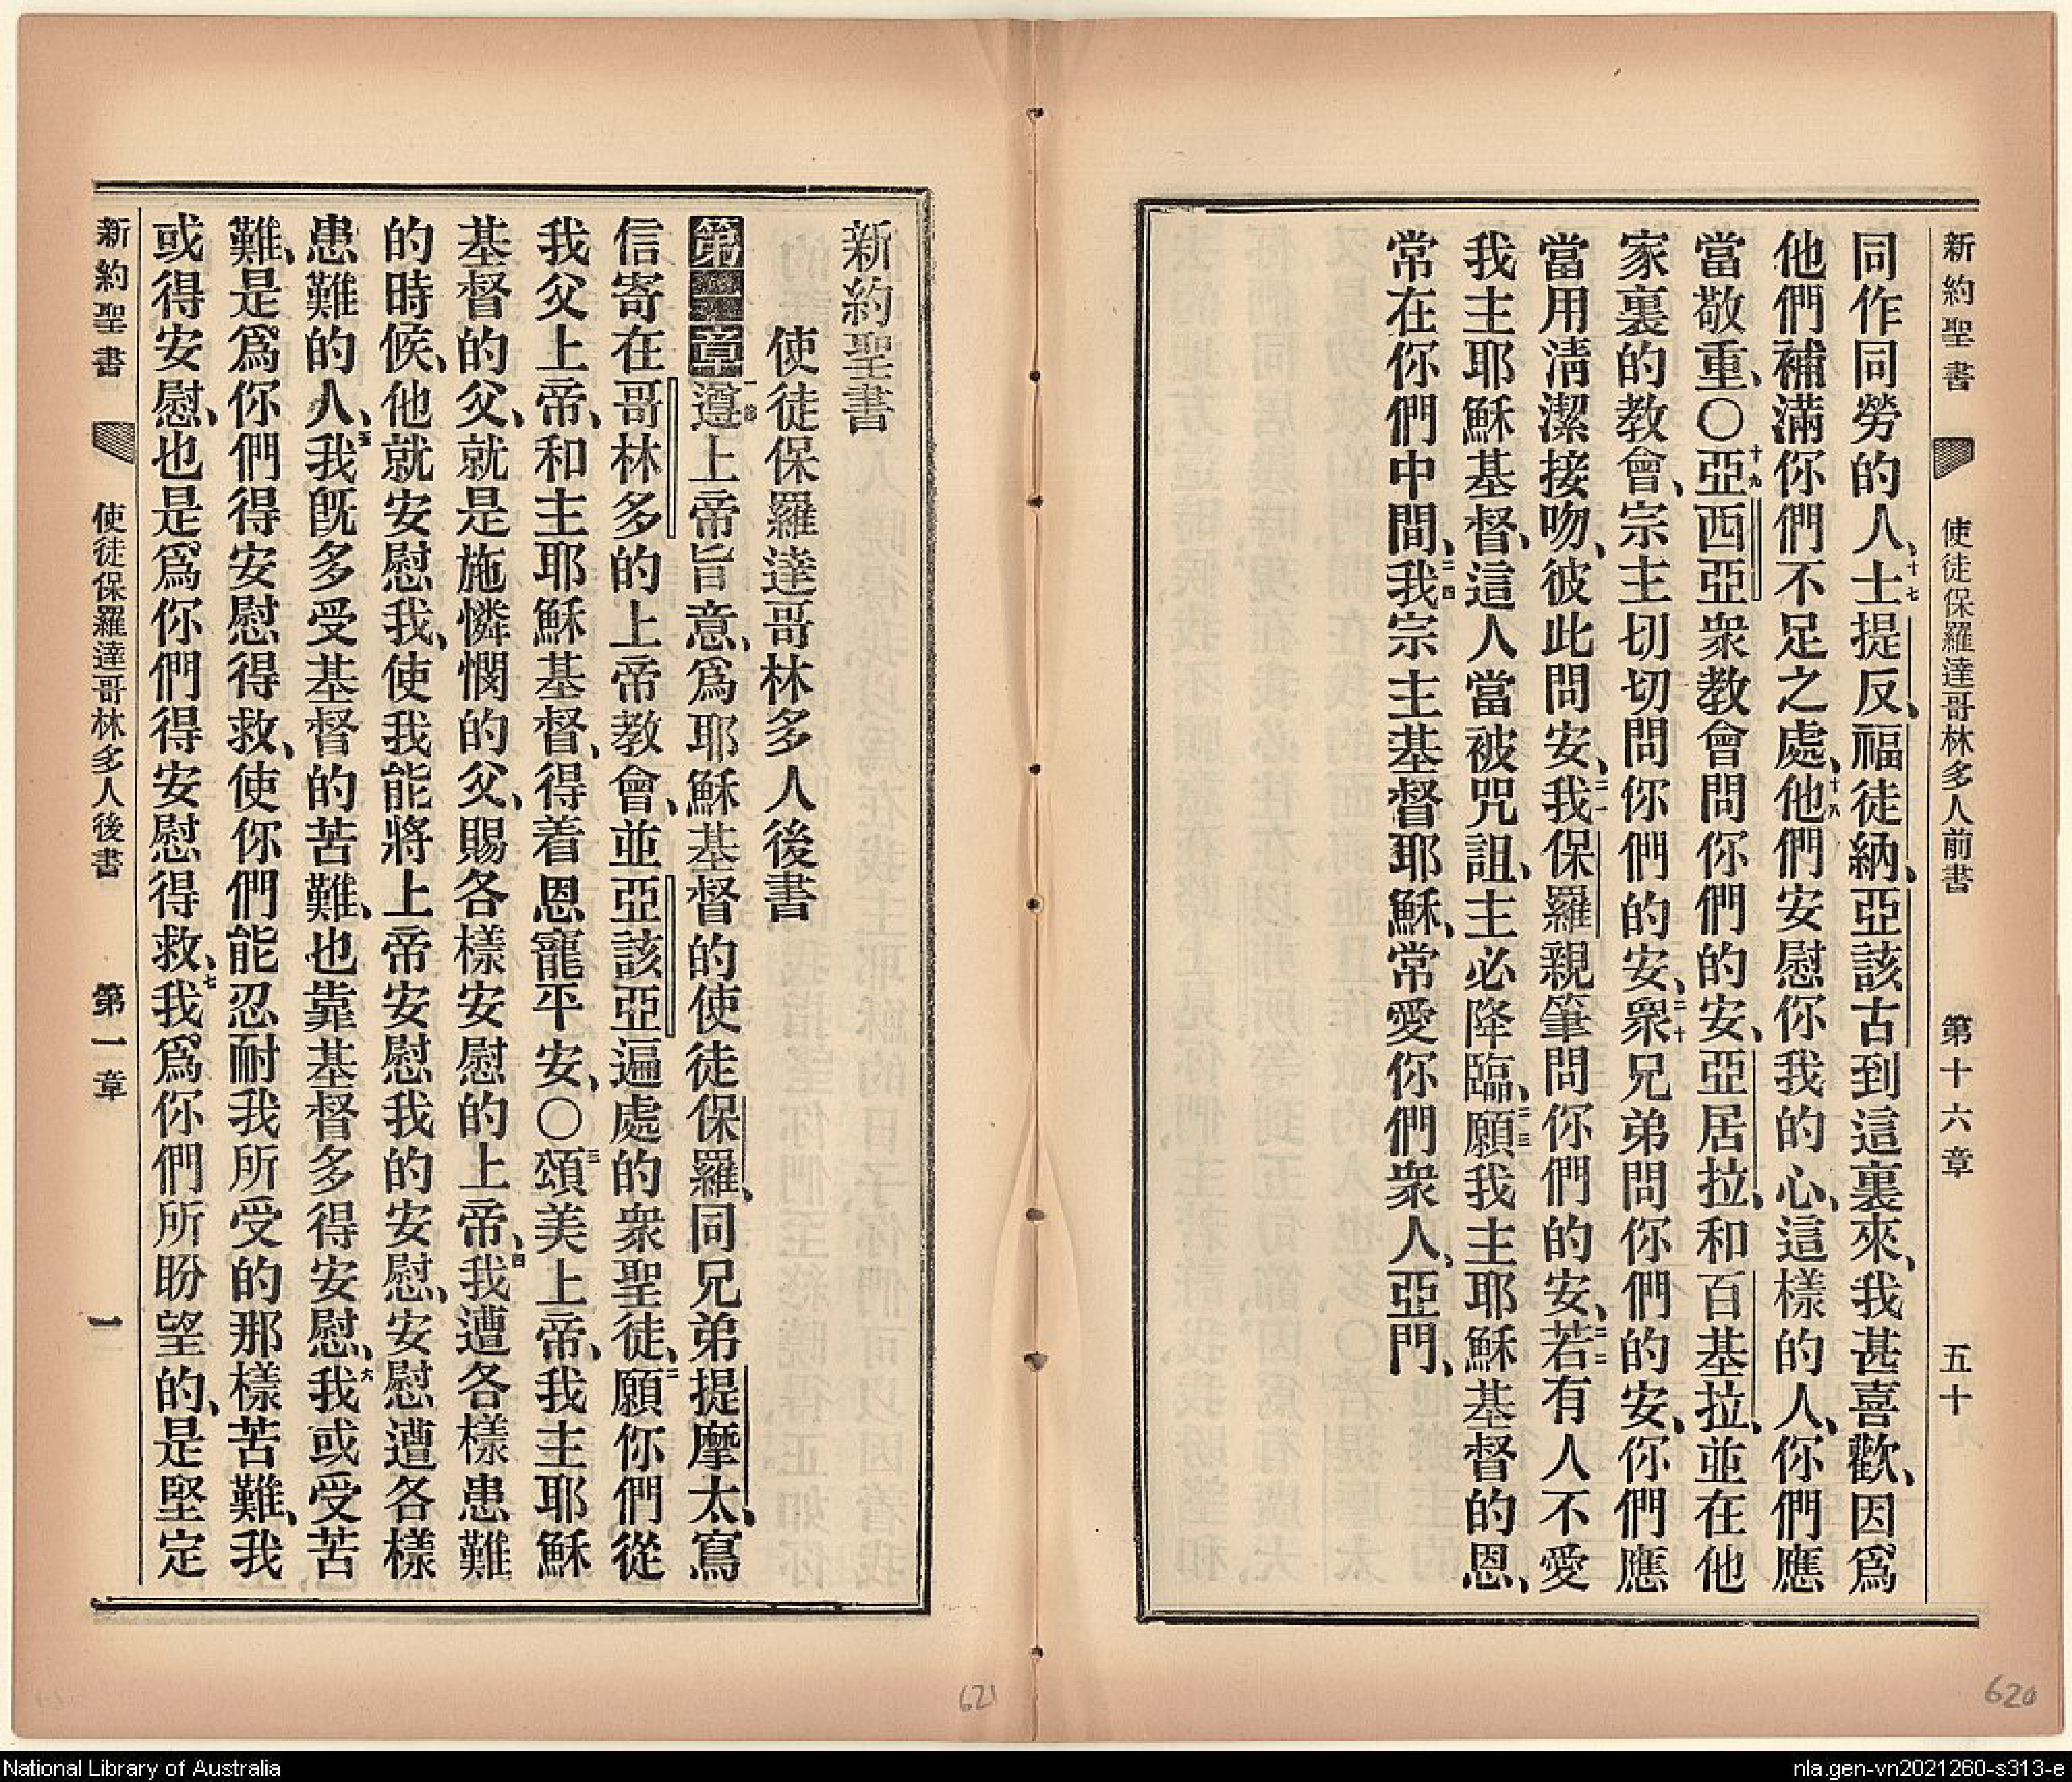 新約聖書 使徒保羅達哥林多人前書 第十六章 五十
同作同勞的人、十七士提反、福徒納、亞該古到這裏來、我甚喜歡、因爲
他們補滿你們不足之處、十八他們安慰你我的心、這樣的人、你們應
當敬重、〇十九亞西亞衆教會問你們的安、亞居拉、和百基拉、並在他
家裏的教會、宗主切切問你們的安、二十衆兄弟問你們的安、你們應
當用淸潔接吻、彼此問安、二一我保羅親筆問你們的安、二二若有人不愛
我主耶穌基督、這人當被咒詛、主必降臨、二三願我主耶穌基督的恩、
常在你們中間、二四我宗主基督耶穌、常愛你們衆人、亞門、
新約聖書
使徒保羅達哥林多人後書
第一章一節遵上帝旨意、爲耶穌基督的使徒保羅、同兄弟提摩太、寫
信寄在哥林多的上帝教會、並亞該亞遍處的衆聖徒、二願你們從
我父上帝、和主耶穌基督、得着恩寵平安、〇三頌美上帝、我主耶穌
基督的父、就是施憐憫的父、賜各樣安慰的上帝、四我遭各樣患難
的時候、他就安慰我、使我能將上帝安慰我的安慰、安慰遭各樣
患難的人、五我旣多受基督的苦難、也靠基督多得安慰、六我或受苦
難、是爲你們得安慰得救、使你們能忍耐我所受的那樣苦難、我
或得安慰、也是爲你們得安慰得救、七我爲你們所盼望的、是堅定
新約聖書 使徒保羅達哥林多人後書 第一章 一
621
620
National Library of Australia
nla.gen-vn2021260-s313-e